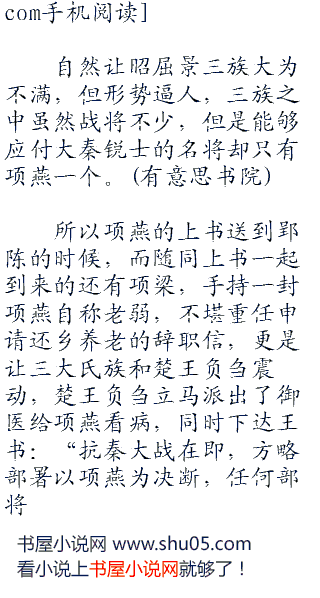 com手机阅读]
自然让昭屈景三族大为
不满，但形势逼人，三族之
中虽然战将不少，但是能够
应付大秦锐士的名将却只有
项燕一个。(有意思书院)
所以项燕的上书送到郢
陈的时候，而随同上书一起
到来的还有项梁，手持一封
项燕自称老弱，不堪重任申
请还乡养老的辞职信，更是
让三大氏族和楚王负刍震
动，楚王负刍立马派出了御
医给项燕看病，同时下达王
书：“抗秦大战在即，方略
部署以项燕为决断，任何部
将
书屋小说网 www.shu05.com
看小说上书屋小说网就够了！